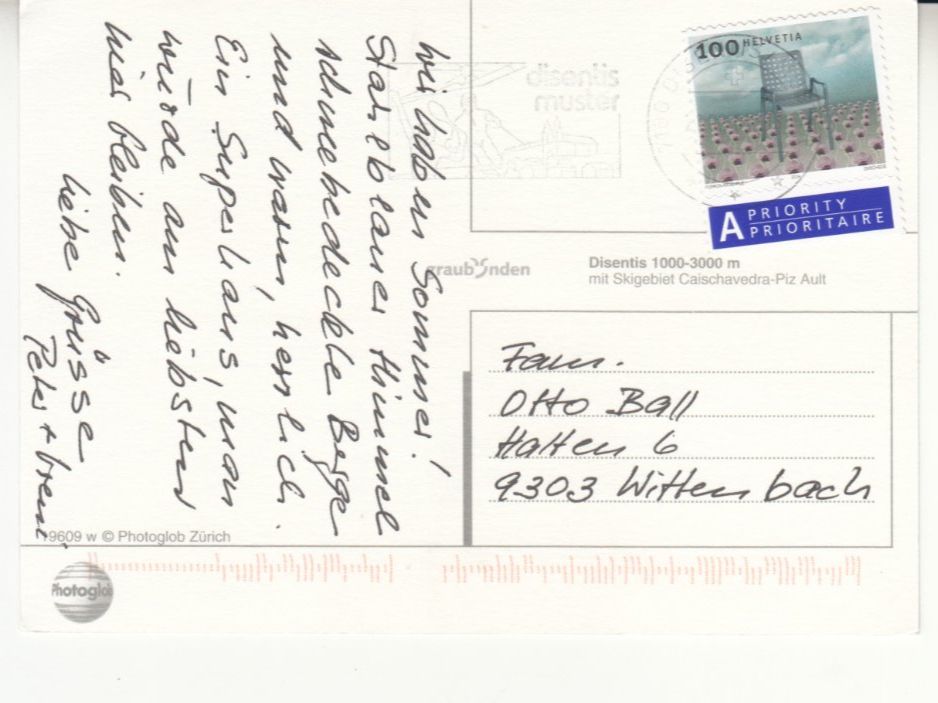 Wir haben Sommer!
Stahlblauer Himmel
schneebedeckte Berge
und warm, herrlich.
Ein Superhaus, man
würde am liebsten
hier bleiben.
Liebe Grüsse
Peter + Irene
disentis
muster
100 HELVETIA
A PRIORITY
PRIORITAIRE
graubünden
Disentis 1000-3000 m
mit Skigebiet Caischavedra-Piz Ault
Fam.
Otto Ball
Halten 6
9303 Wittenbach
9609 w © Photoglob Zürich
Photoglob